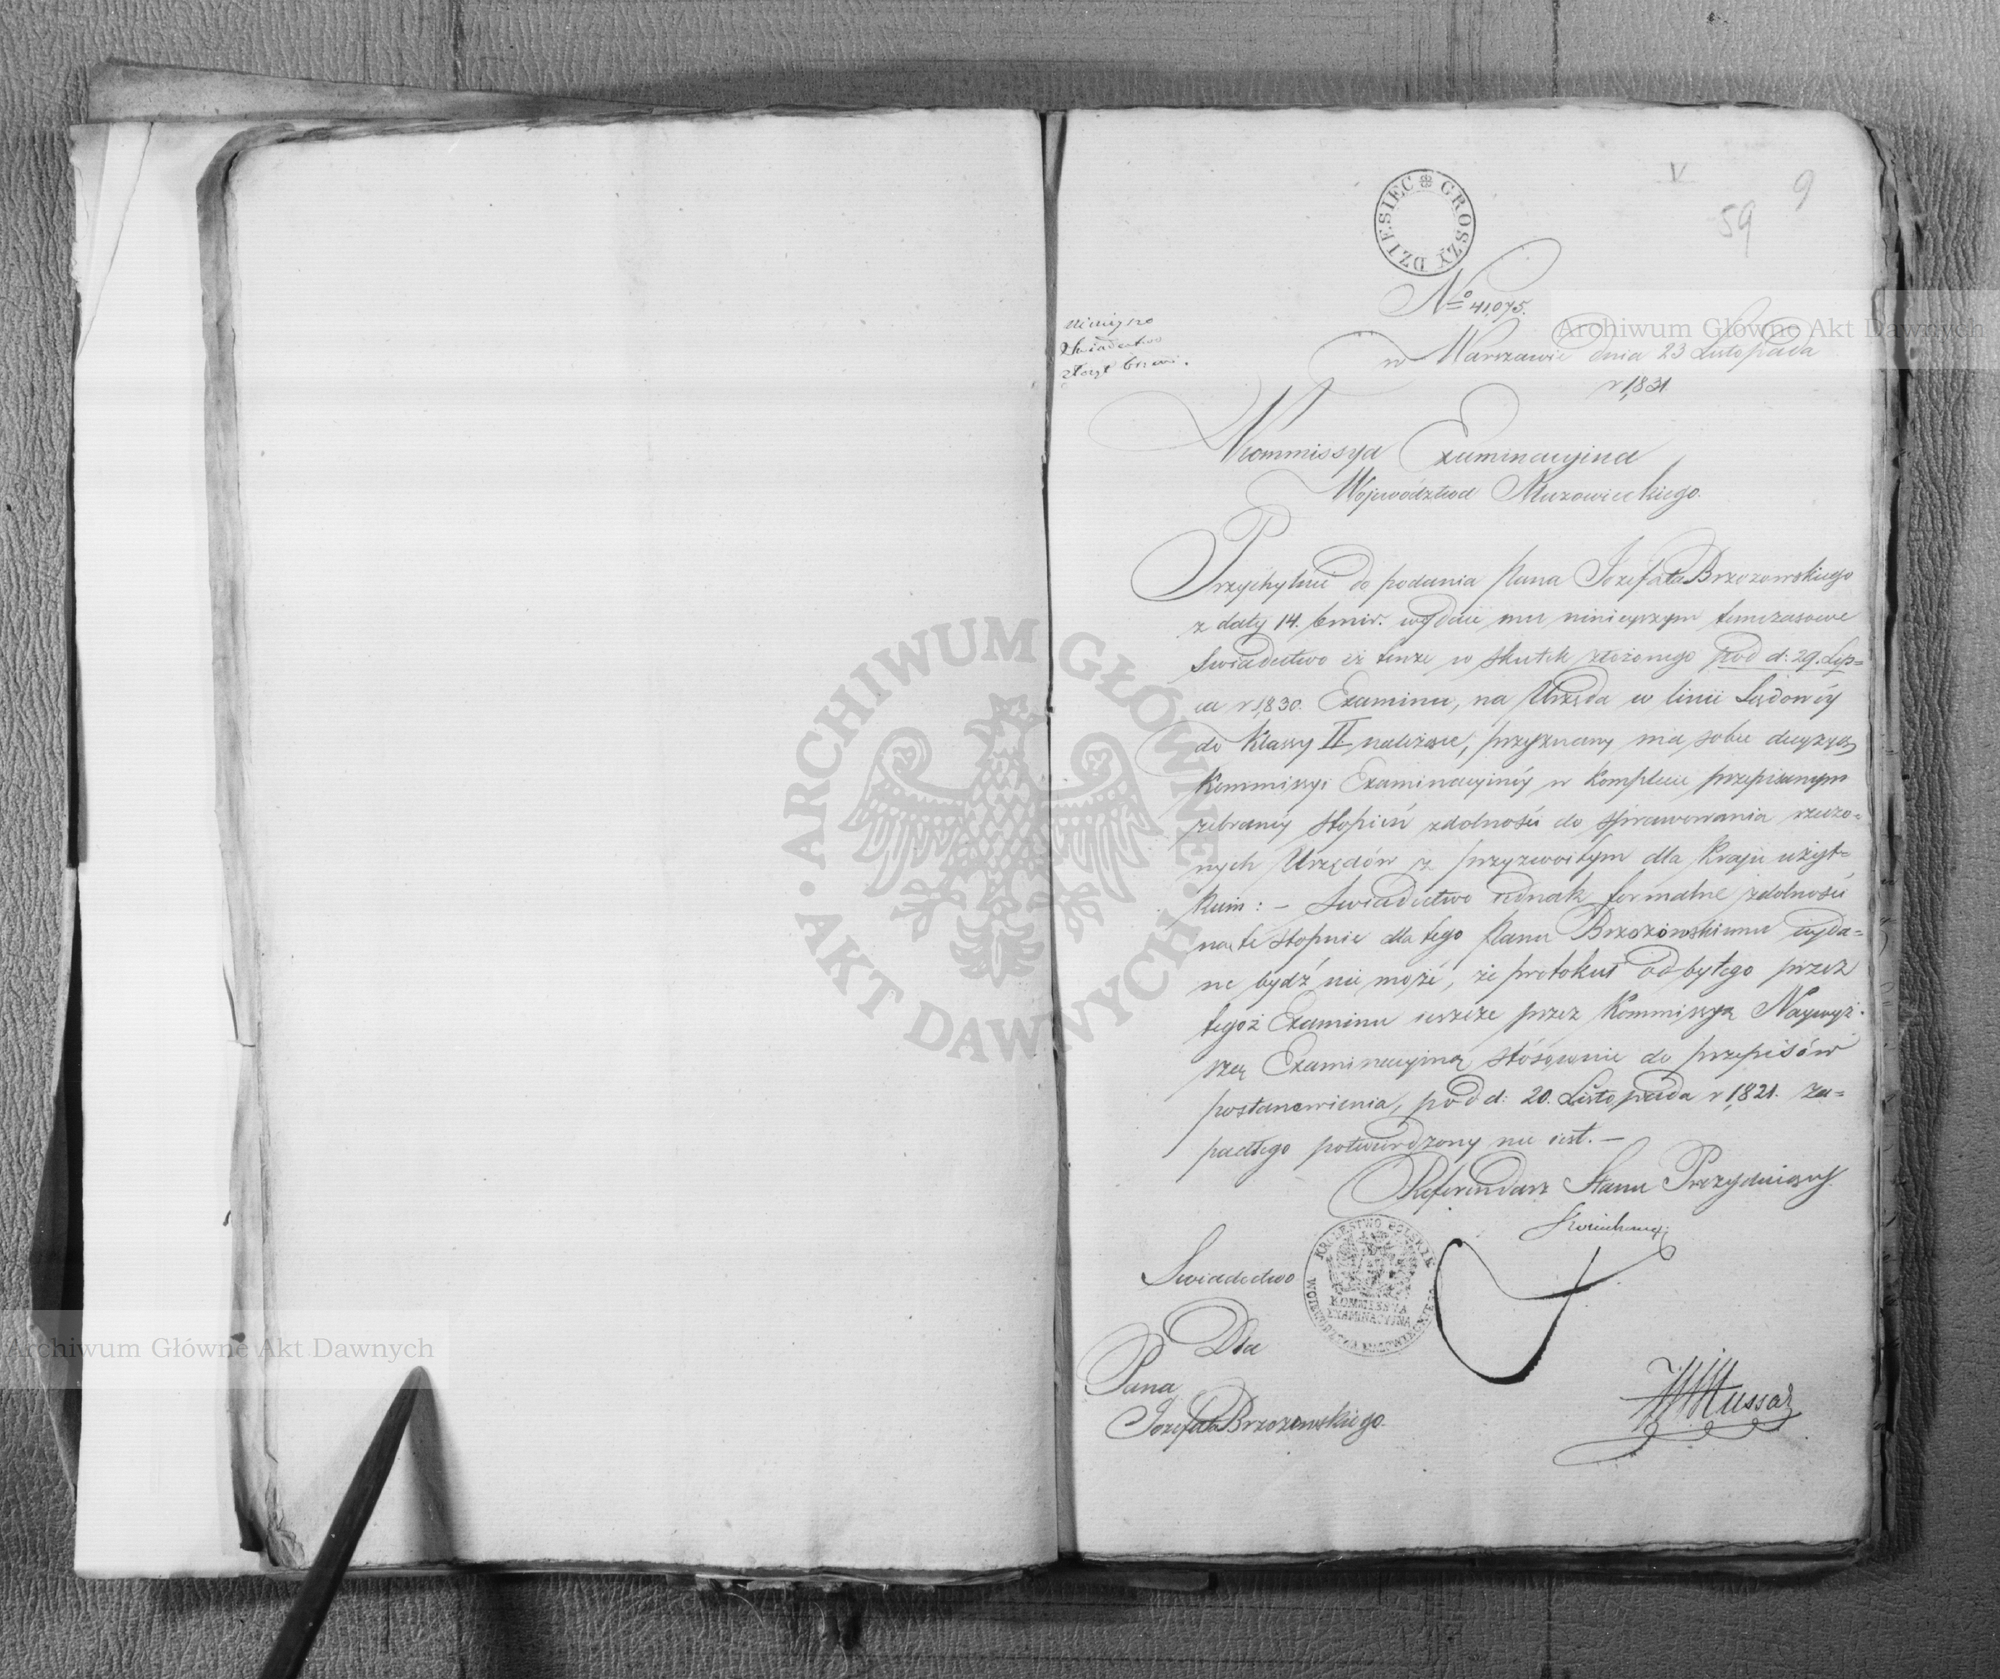 DZIESIEC GROSZY
V
9
59
No 41,075.
w Warszawie dnia 23 Listopada
r 1,831
Swiadectwo
Kommissya Examinacyina
Województwa Mazowieckiego.
Przychylnie do podania Pana Jozefata Brzozowskiego
z daty 14. bmir. wydaie mu ninieyszym tymczasowe
Swiadectwo iż tenże w skutek złożonego pod d: 29. Lip=
ca r 1,830. Examinu, na Urzęda w linii Sądowéy
do Klassy II należące, przyznany ma sobie decyzyą
Kommissyi Examinacyinéy w komplecie przepisanym
zebranéy stopień zdolności do sprawowania rzeczo=
nych Urzędów z przyzwoitym dla Kraju użyt=
kiem: – Swiadectwo iednak formalne zdolności
na te stopnie dla tego Panu Brzozowskiemu wyda=
ne bydź nie może, że protokuł odbytego przez
tegoż Examinu ieszcze przez Kommissyą Naywyż=
szą Examinacyiną stósownie do przepisów
postanowienia, pod d: 20. Listopada r 1,821. za=
padłego potwierdzony nie iest. –
Referendarz Stanu Prezyduiący
KRÓLESTWO POLSKIE
KOMMISSYA
EXAMINACYJNA
WOIEWODZTWA MAZOWIECKIEGO
Swiadectwo
Dla
Pana
Jozefata Brzozowskiego.
Hussar
Archiwum Główne Akt Dawnych
Archiwum Główne Akt Dawnych
ARCHIWUM GŁÓWNE · AKT DAWNYCH ·